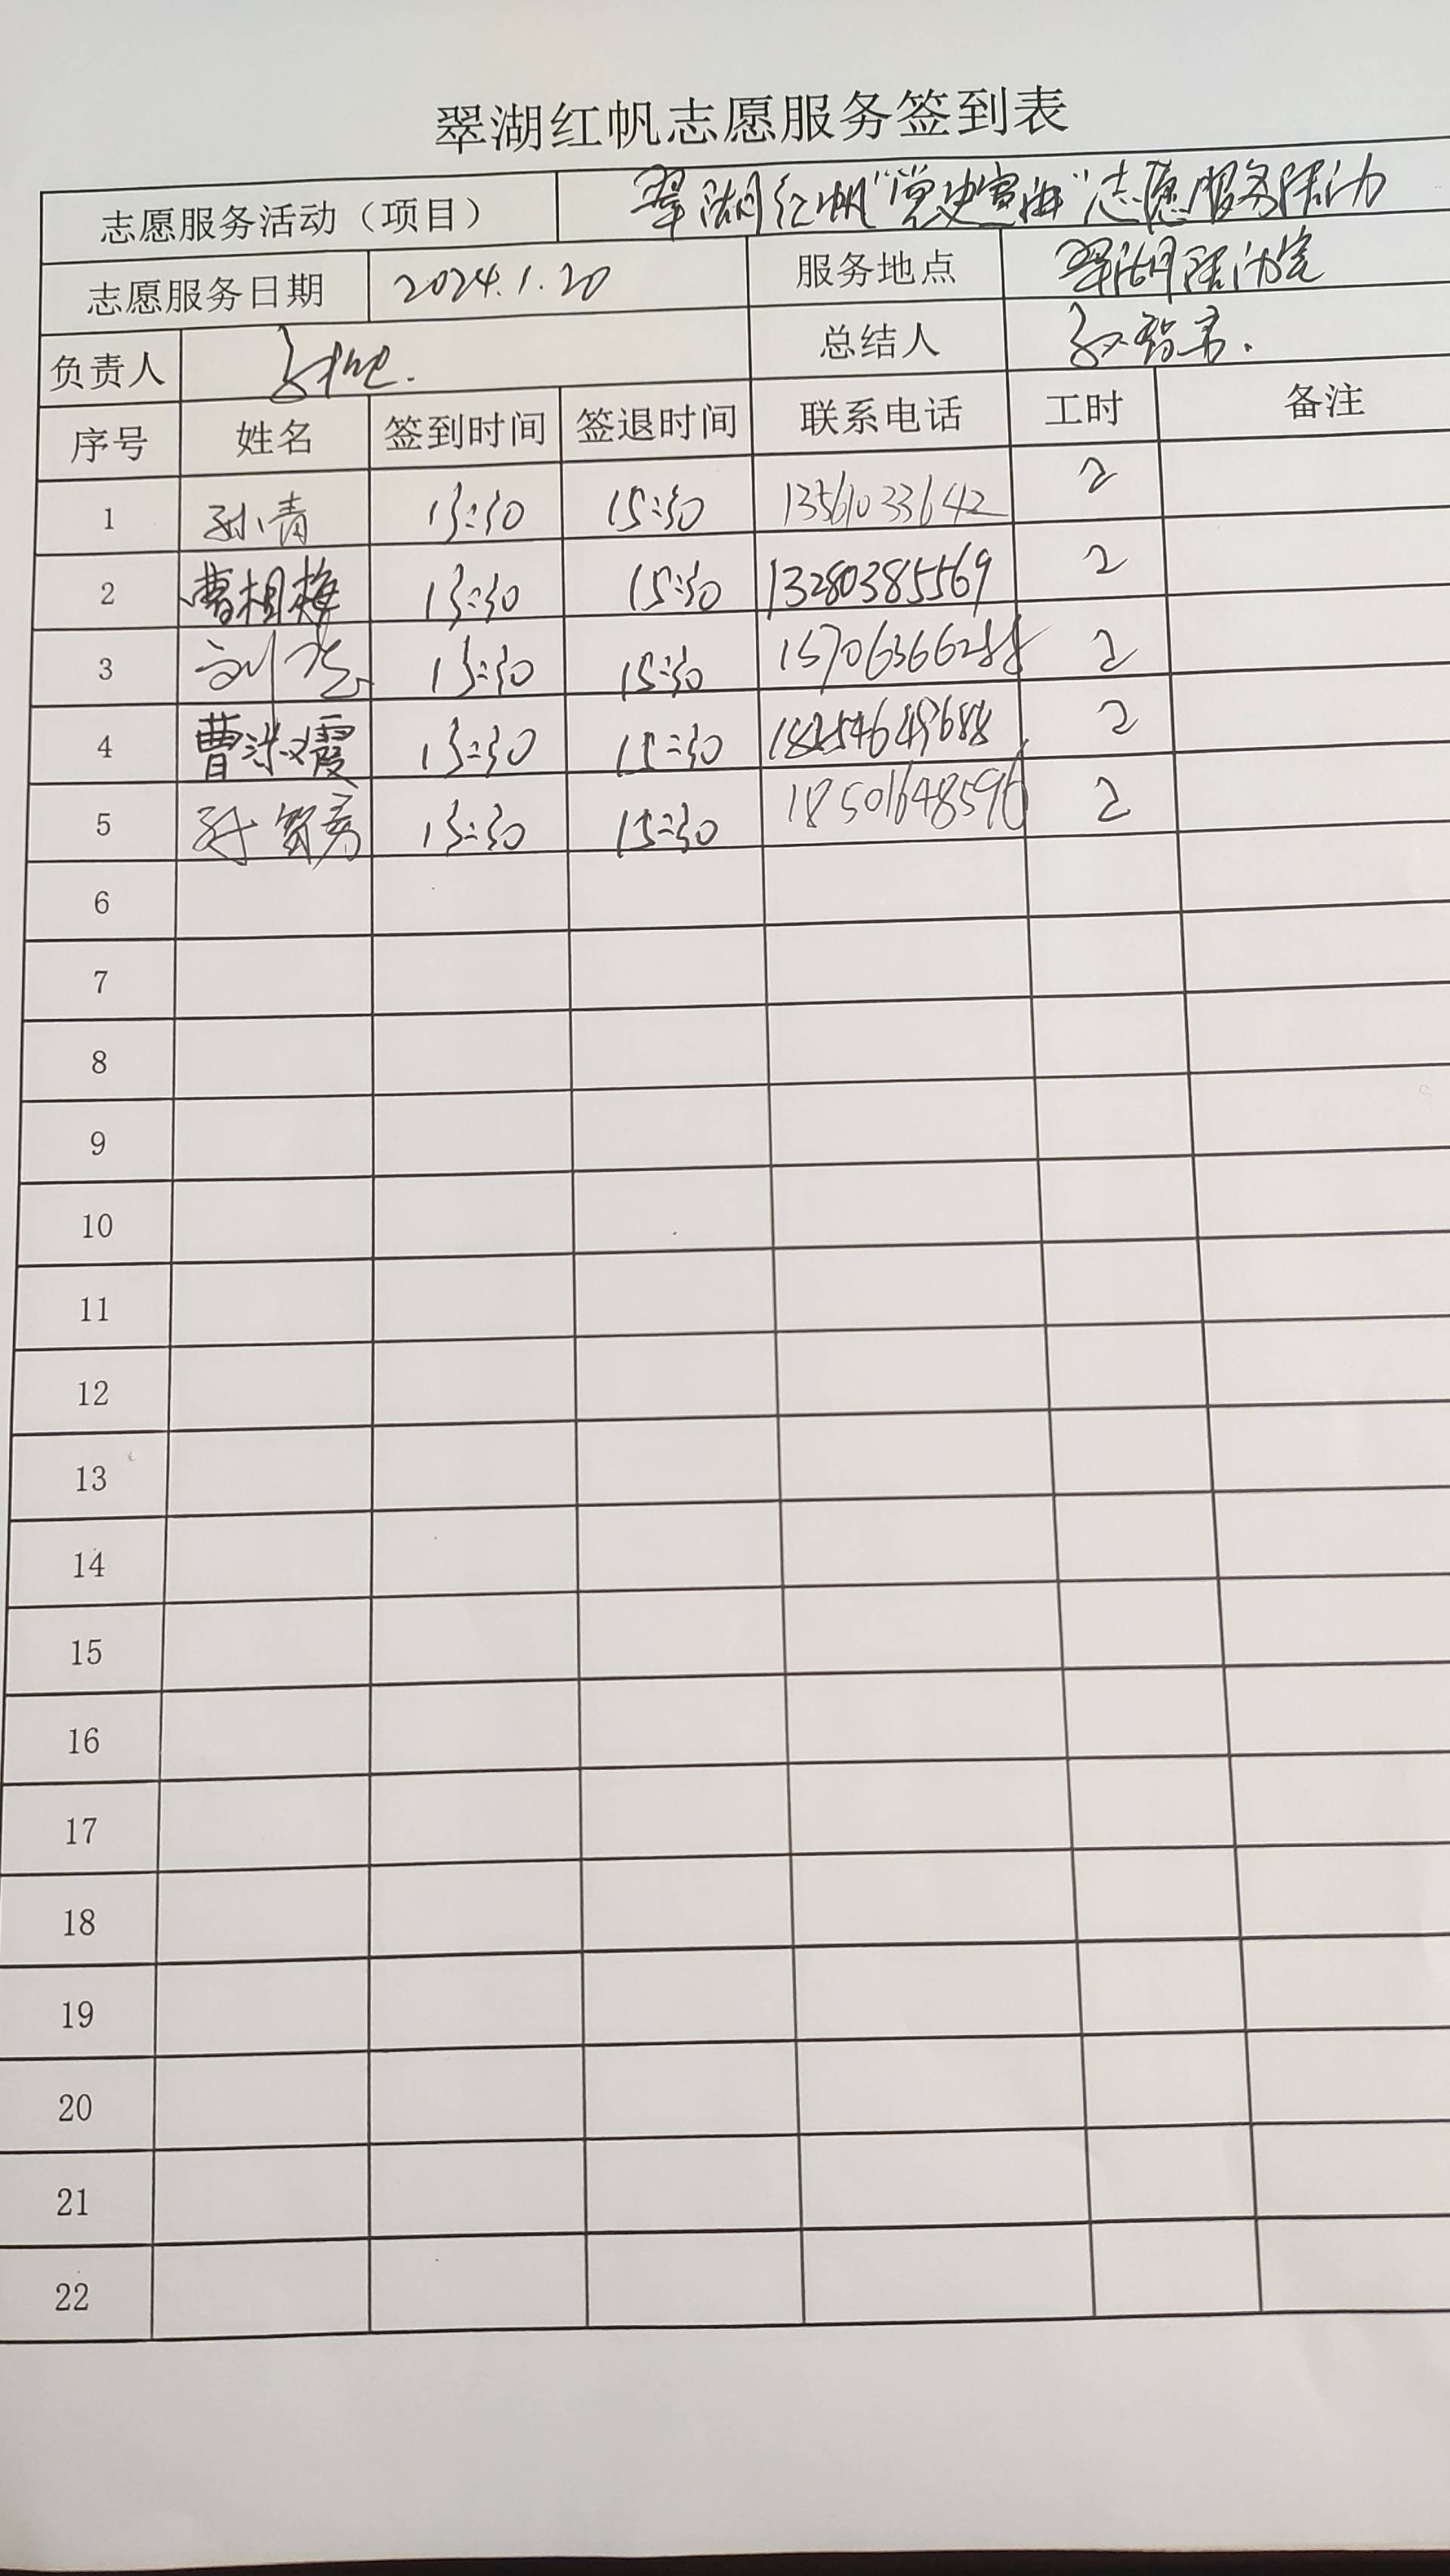 翠湖红帆志愿服务签到表
志愿服务活动（项目） 翠湖红帆“党史宣讲”志愿服务活动
志愿服务日期 2024.1.20 服务地点 翠湖活动室
负责人 总结人
序号 姓名 签到时间 签退时间 联系电话 工时 备注
1 孙青 13:30 15:30 13561033642 2
2 曹相梅 13:30 15:30 13280385569 2
3 刘 13:30 15:30 15706366288 2
4 曹淑霞 13:30 15:30 18254649688 2
5 13:30 15:30 18501648596 2
6
7
8
9
10
11
12
13
14
15
16
17
18
19
20
21
22